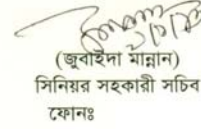 (জুবাইদা মান্নান)
সিনিয়র সহকারী সচিব
ফোনঃ